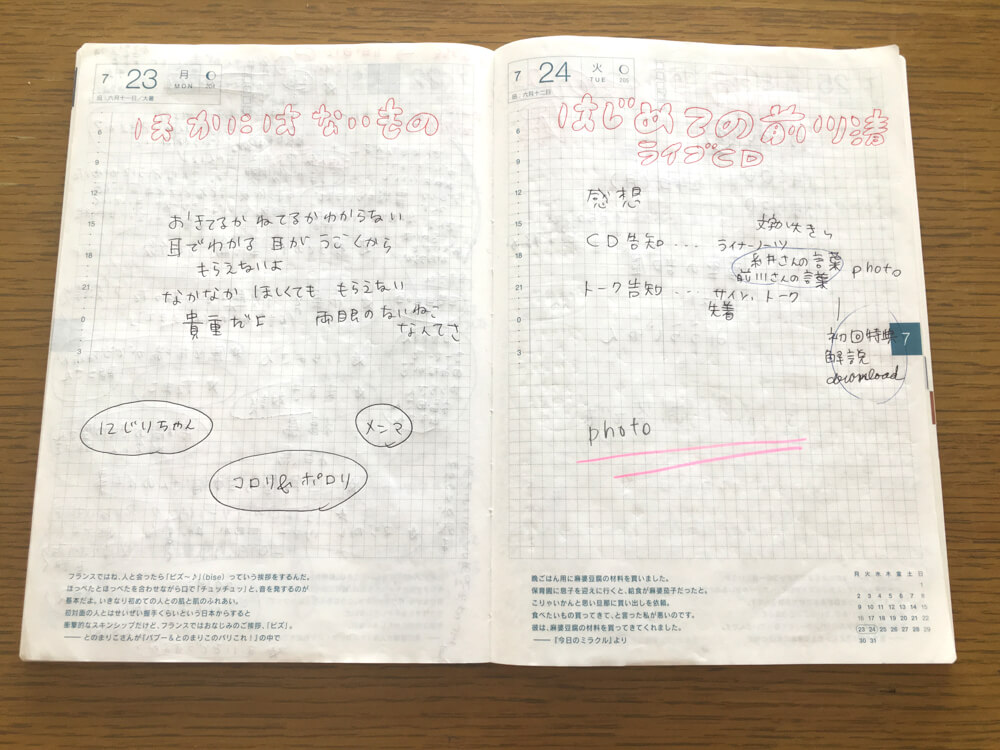 7 23 月 MON
旧：六月十一日／大暑
ほかにはないもの
6
9
12
15
18
21
0
3
おきてるか ねてるか わからない
耳でわかる 耳が うごくから
もらえないよ
なかなか ほしくても もらえない
貴重だよ 両眼のないねこ
なんてさ
にじりちゃん
メンマ
コロリ& ポロリ
フランスではね、人と会ったら「ビズ〜♪」（bise）っていう挨拶をするんだ。
ほっぺたとほっぺたを合わせながら口で「チュッチュッ」と、音を発するのが
基本だよ。いきなり初めての人との肌と肌のふれあい。
初対面の人とはせいぜい握手くらいという日本からすると
衝撃的なスキンシップだけど、フランスではおなじみのご挨拶、「ビズ」。
―― とのまりこさんが『バブー&とのまりこのパリこれ！』の中で
7 24 火 TUE
旧：六月十二日
はじめての前川清
ライブCD
6
9
12
15
18
21
0
3
感想
CD告知 ....
ライナーノーツ
糸井さんの言葉
前川さんの言葉
photo
トーク告知 ....
サイン、トーク
先着
初回特典
解説
download
7
photo
晩ごはん用に麻婆豆腐の材料を買いました。
保育園に息子を迎えに行くと、給食が麻婆茄子だったと。
こりゃいかんと思い旦那に買い出しを依頼。
食べたいもの買ってきて、と言った私が悪いのです。
彼は、麻婆豆腐の材料を買ってきてくれました。
―― 『今日のミラクル』より
月 火 水 木 金 土 日
1
2 3 4 5 6 7 8
9 10 11 12 13 14 15
16 17 18 19 20 21 22
23 24 25 26 27 28 29
30 31